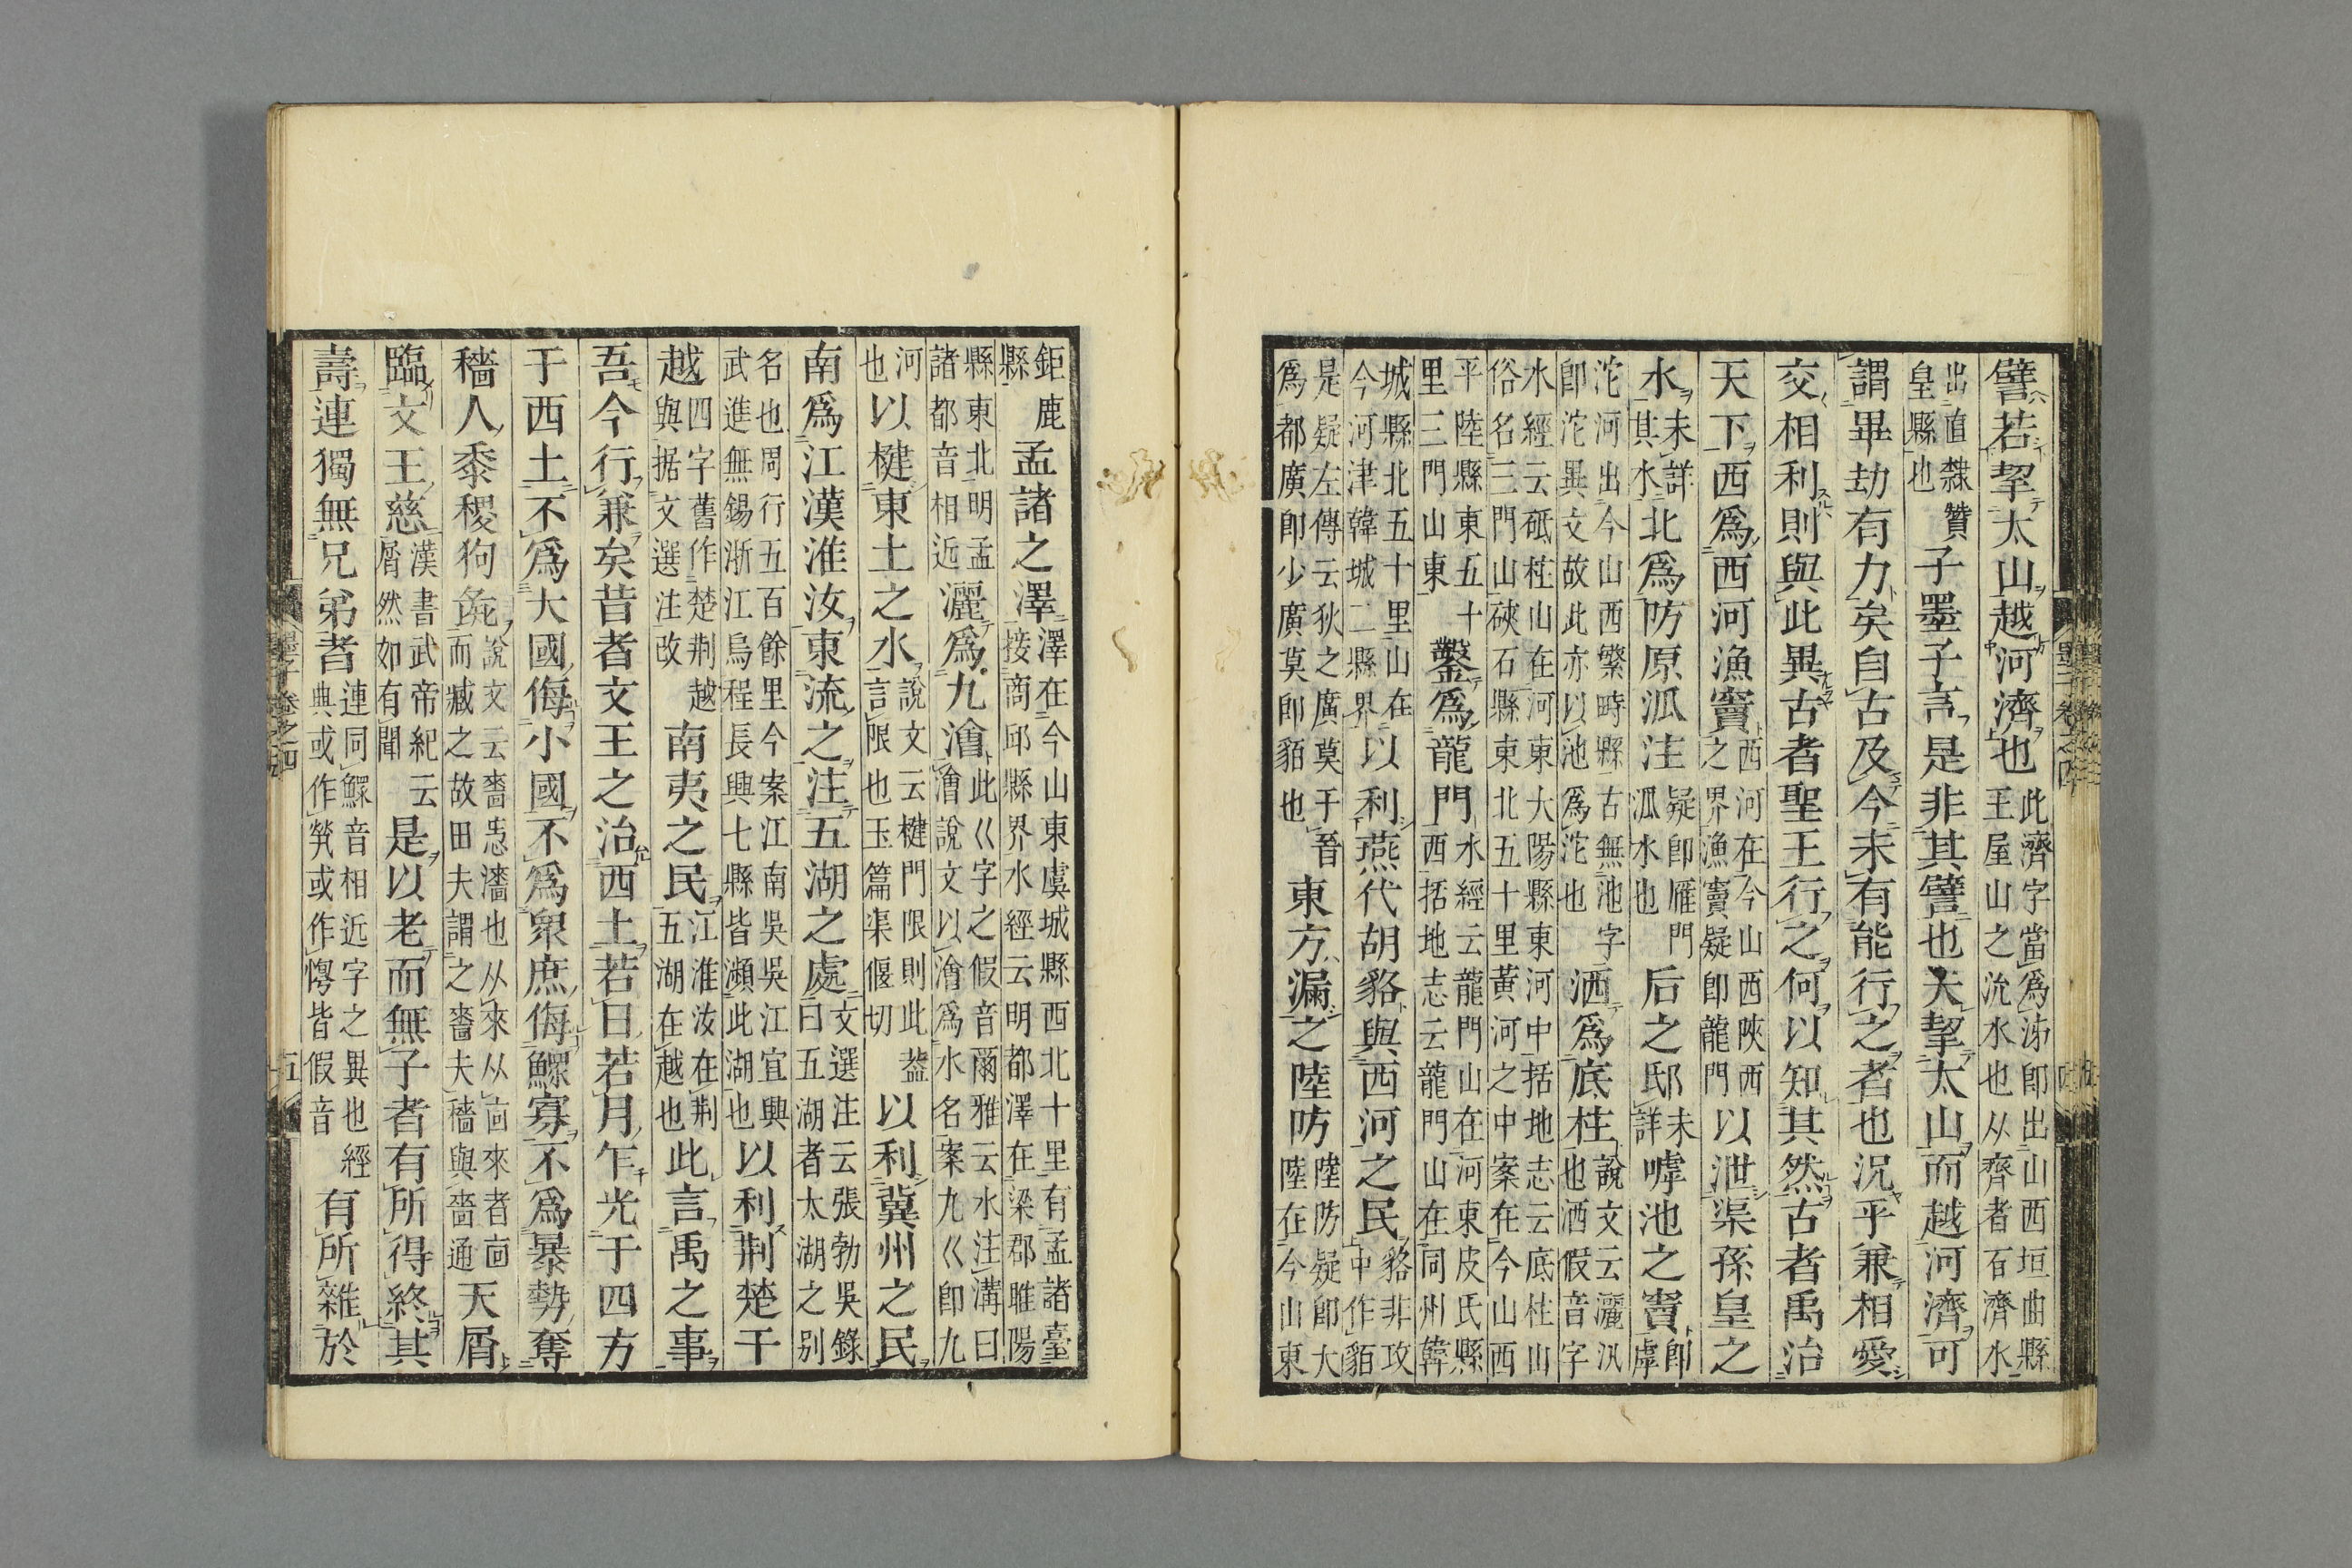 譬若挈太山越河濟也此濟字當爲泲卽出山西垣曲縣王屋山之流水也从齊者石濟水
出直隸贊皇縣也子墨子言是非其譬也夫挈太山而越河濟可
謂畢劫有力矣自古及今未有能行之者也況乎兼相愛
交相利則與此異古者聖王行之何以知其然古者禹治
天下西爲西河漁竇西河在今山西陝西之界漁竇疑卽龍門以泄渠孫皇之
水未詳其水北爲防原泒注疑卽雁門泒水也后之邸未詳嘑池之竇卽虖
沱河出今山西繁畤縣古無池字卽沱異文故此亦以池爲沱也洒爲底柱說文云灑汛也洒假音字
水經云砥柱山在河東大陽縣東河中括地志云底柱山俗名三門山硤石縣東北五十里黃河之中案在今山西
平陸縣東五十里三門山東鑿爲龍門水經云龍門山在河東皮氏縣西括地志云龍門山在同州韓
城縣北五十里山在今河津韓城二縣界以利燕代胡貉與西河之民貉非攻中作貊
是疑左傳云狄之廣莫于晉爲都廣卽少廣莫卽貊也東方漏之陸防陸防疑卽大陸在今山東
鉅鹿縣孟諸之澤澤在今山東虞城縣西北十里有孟諸臺接商邱縣界水經云明都澤在梁郡睢陽
縣東北明孟諸都音相近灑爲九澮此巜字之假音爾雅云水注溝曰澮說文以澮爲水名案九巜卽九
河也以楗東土之水說文云楗門限則此盖言限也玉篇渠偃切以利冀州之民
南爲江漢淮汝東流之注五湖之處文選注云張勃吳錄曰五湖者太湖之别
名也周行五百餘里今案江南吳吳江宜興武進無錫浙江烏程長興七縣皆瀕此湖也以利荆楚干
越四字舊作楚荆越與据文選注改南夷之民江淮汝在荆五湖在越也此言禹之事
吾今行兼矣昔者文王之治西土若日若月乍光于四方
于西土不爲大國侮小國不爲衆庶侮鰥寡不爲暴勢奪
穡人黍稷狗彘說文云嗇㤅濇也从來从㐭來者㐭而臧之故田夫謂之嗇夫穡與嗇通天屑
臨文王慈漢書武帝紀云屑然如有聞是以老而無子者有所得終其
壽連獨無兄弟者連同鰥音相近字之異也經典或作煢或作惸皆假音有所雜於
墨子卷之四
五